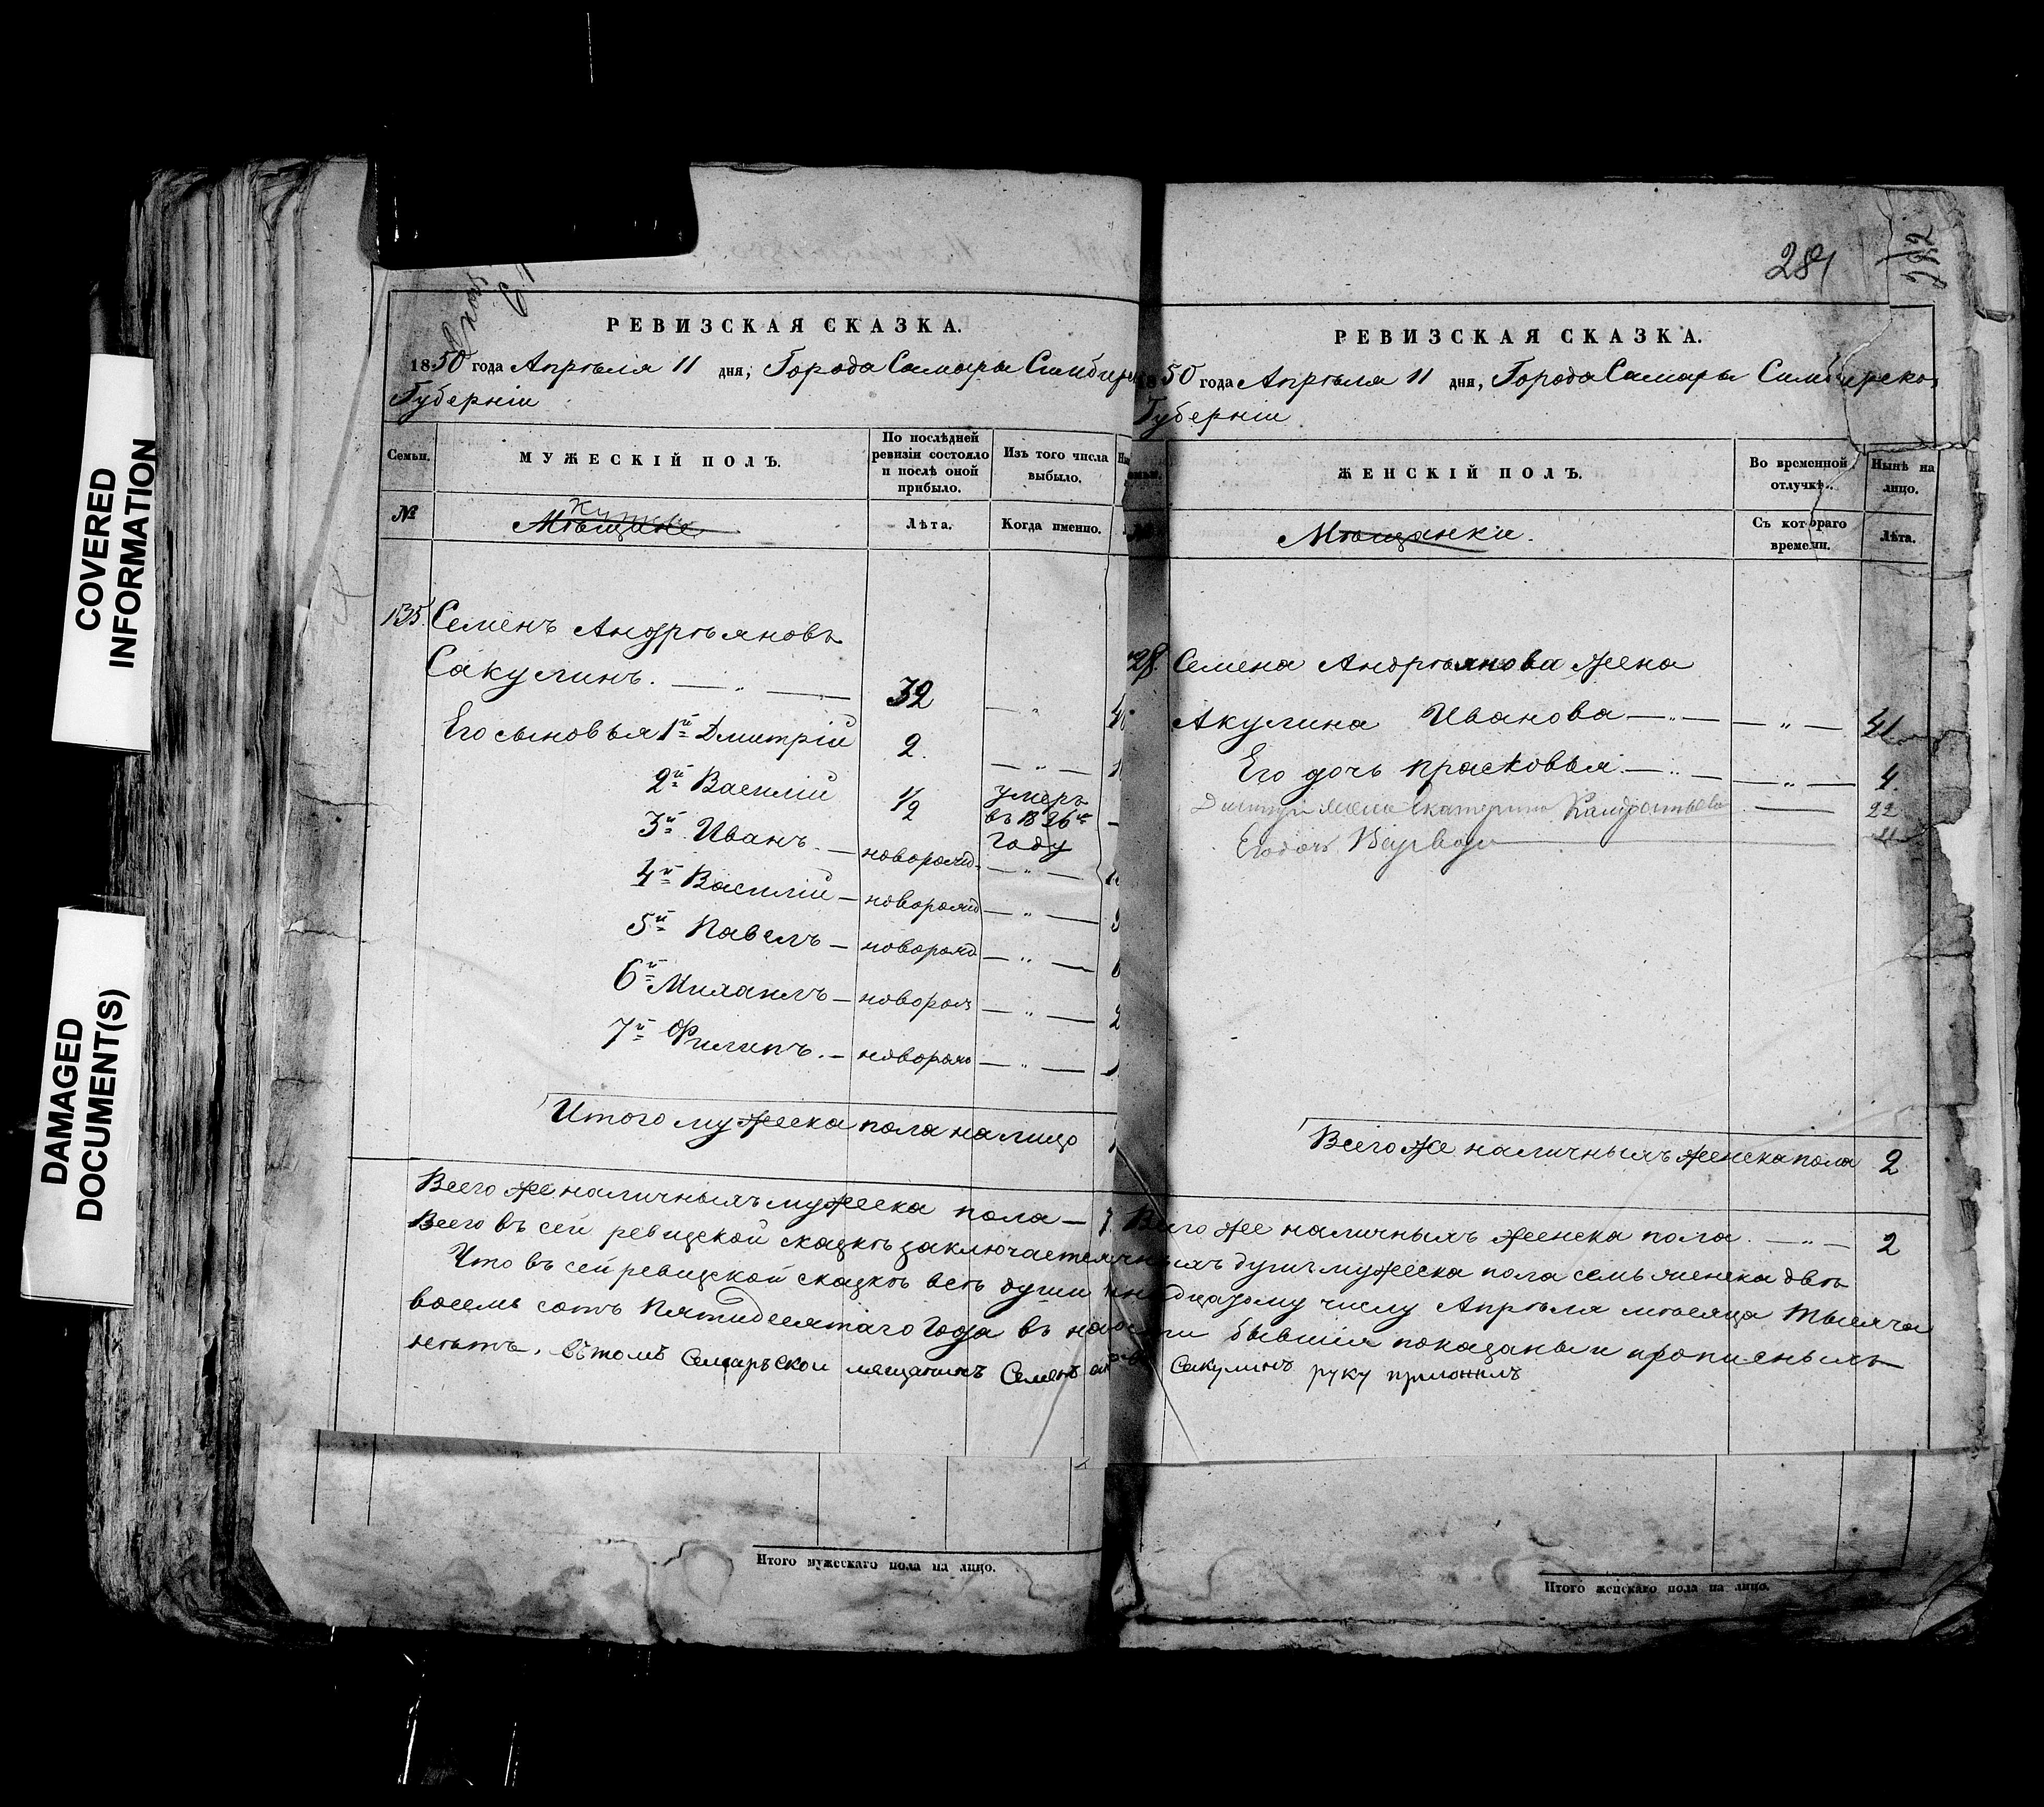 COVERED
INFORMATION
DAMAGED
DOCUMENT(S)
РЕВИЗСКАЯ СКАЗКА.
1850 года Апрѣля 11 дня, Города Самары Симбирск
Губерніи
Семьи. МУЖЕСКІЙ ПОЛЪ. По послѣдней ревизіи состояло и послѣ оной прибыло. Изъ того числа выбыло.
№ Мѣщане Лѣта. Когда именно.
135. Семенъ Андрѣяновъ
Сакулинъ. — „ — 32 — „
Его сыновья 1й Дмитрій 2. — „ —
2й Василій 1/2 умеръ
въ 1836м
году
3й Иванъ. — новорожд. — „ —
4й Василій — новорожд — „ —
5й Павелъ — новорожд — „ —
6й Михаилъ — новорож — „ — 2
7й Филипъ. — новорож — „ —
Итого мужеска пола на лицо
Итого мужескаго пола на лицо.
284
РЕВИЗСКАЯ СКАЗКА.
1850 года Апрѣля 11 дня, Города Самары Симбирской
Губерніи
ЖЕНСКІЙ ПОЛЪ. Во временной отлучкѣ. Нынѣ на лицо.
Мѣщанки. Съ котораго времени. Лѣта.
Семена Андрѣянова жена
Акулина Иванова — „ — — „ — 41
Его дочь Прасковья. — „ — — „ — 4.
Дмитрія жена Екатерина 22
Его дочь
Всего же наличныхъ женска пола 2
Всего же наличныхъ мужеска пола — 7. Всего же наличныхъ женска пола. — „ — 2
Всего въ сей ревизской сказкѣ заключается наличныхъ душъ мужеска пола семь женска двѣ
Что въ сей ревизской сказкѣ всѣ души надцатому числу Апрѣля мѣсяца тысяча
восемь сотъ Пятидесятаго Года въ бывшія показаны и прописныхъ
нѣтъ. Въ томъ Самарской мещанинъ Семенъ Сакулинъ руку приложилъ
Итого женскаго пола на лицо.